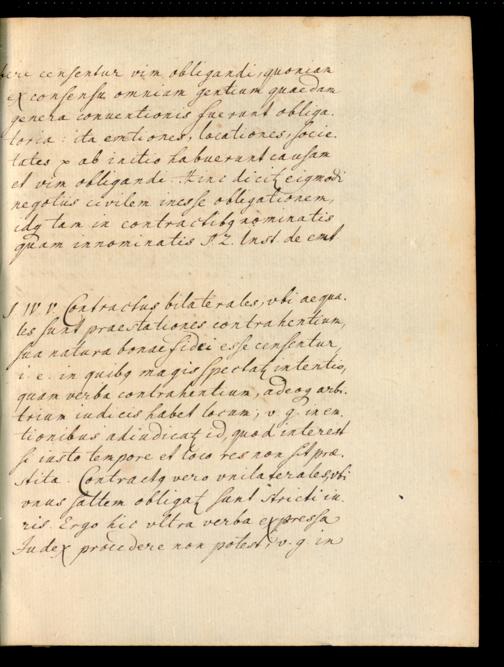 bere censentur vim obligandi, quoniam
ex consensu omnium gentium quaedam
genera conventionis fuerunt obliga-
toria: ita emtiones, locationes, socie-
tates x ab initio habuerunt causam
et vim obligandi. Hinc dicitꝛ eigmodi
negotiis civilem inesse obligationem,
idq tam in contractibq nominatis
quam innominatis §. 2. Inst. de emt
§. IV. V. Contractus bilaterales, vbi aequa-
les sunt praestationes contrahentium,
sua natura bonae fidei esse censentur,
i. e. in quibq magis spectatꝛ intentio,
quam verba contrahentium, adeoq arbi-
trium iudicis habet locum, v. g. in em-
tionibus adiudicatꝛ id, quod interest
si iusto tempore et loco res non sit prae-
stita. Contractq vero vnilaterales, vbi
vnus saltem obligatꝛ sunt stricti iu-
ris. Ergo hic vltra verba expressa
Iudex procedere non potest, v. g. in